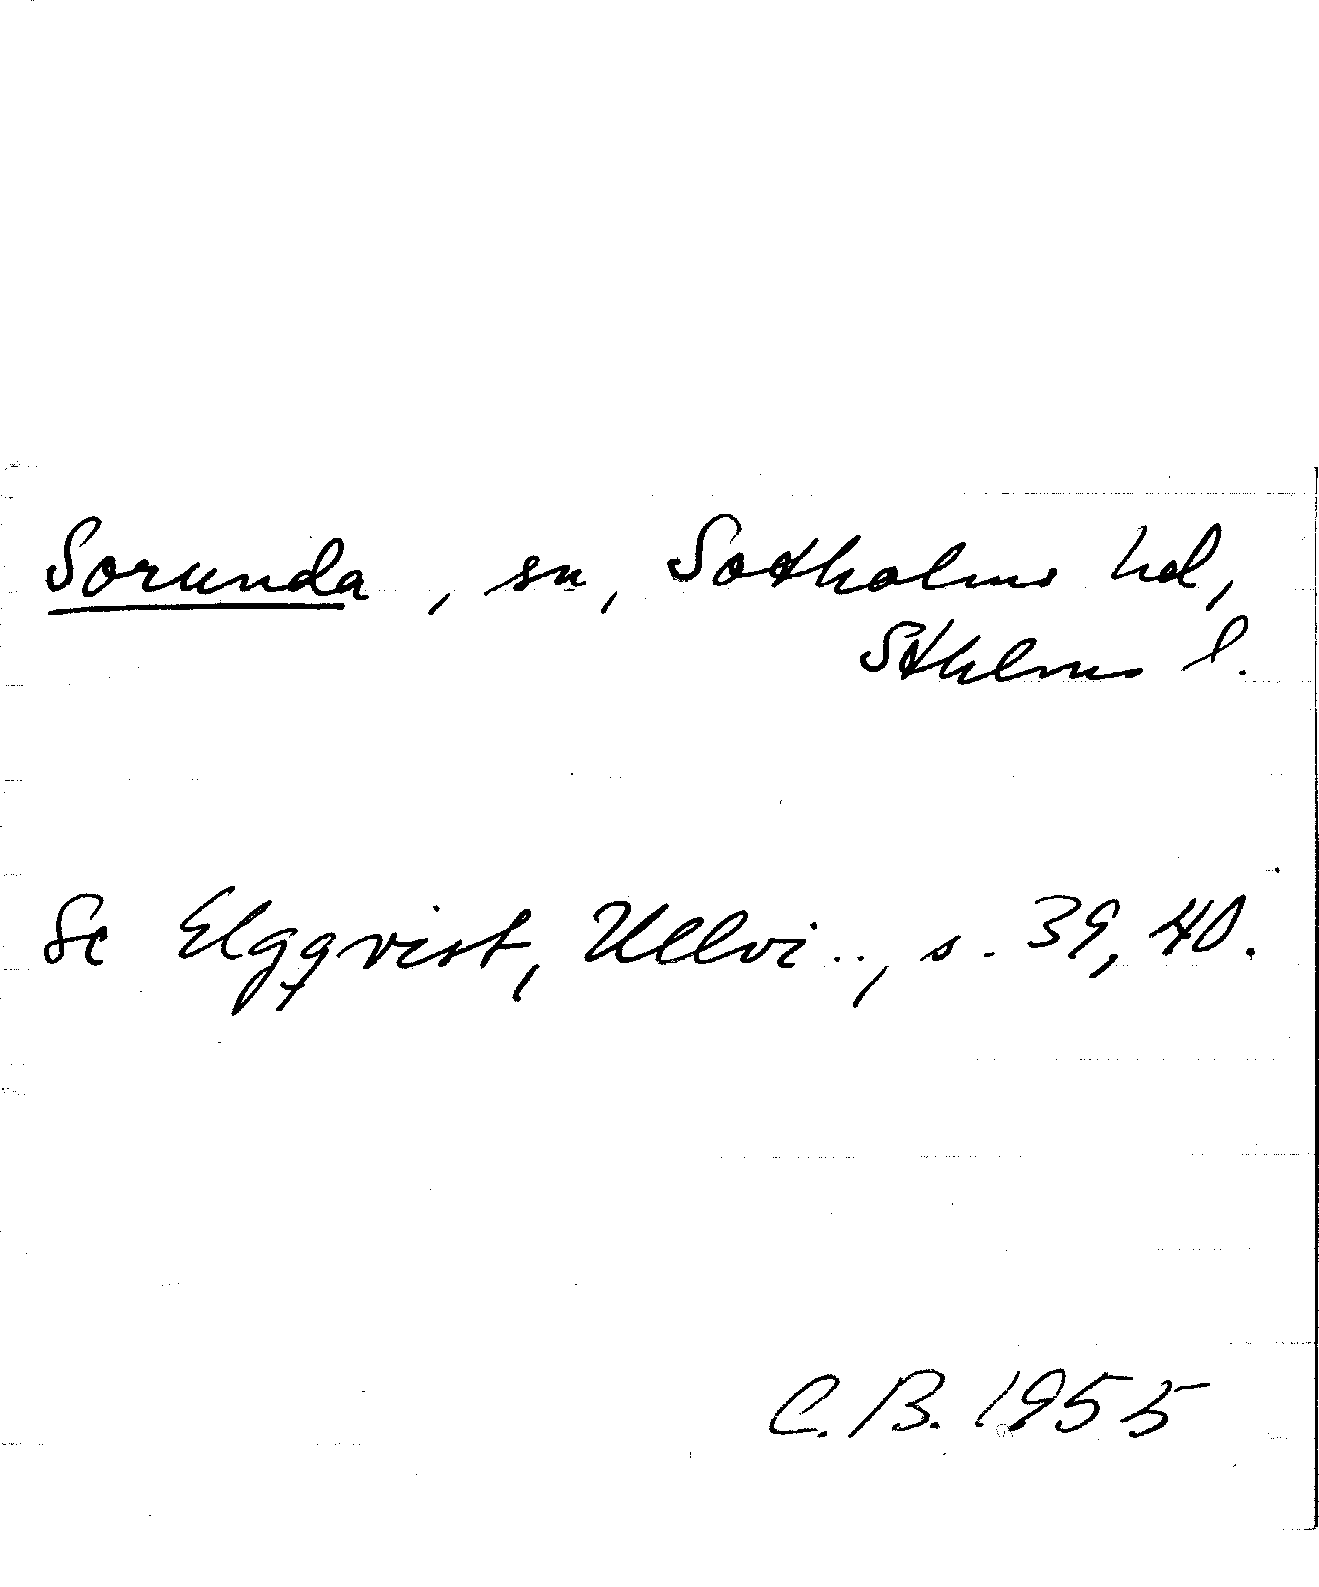 Sorunda, sn, Sotholms hd,
Sthlms l.
Se Elgqvist, Ullvi.., s. 39, 40.
C.B. 1955